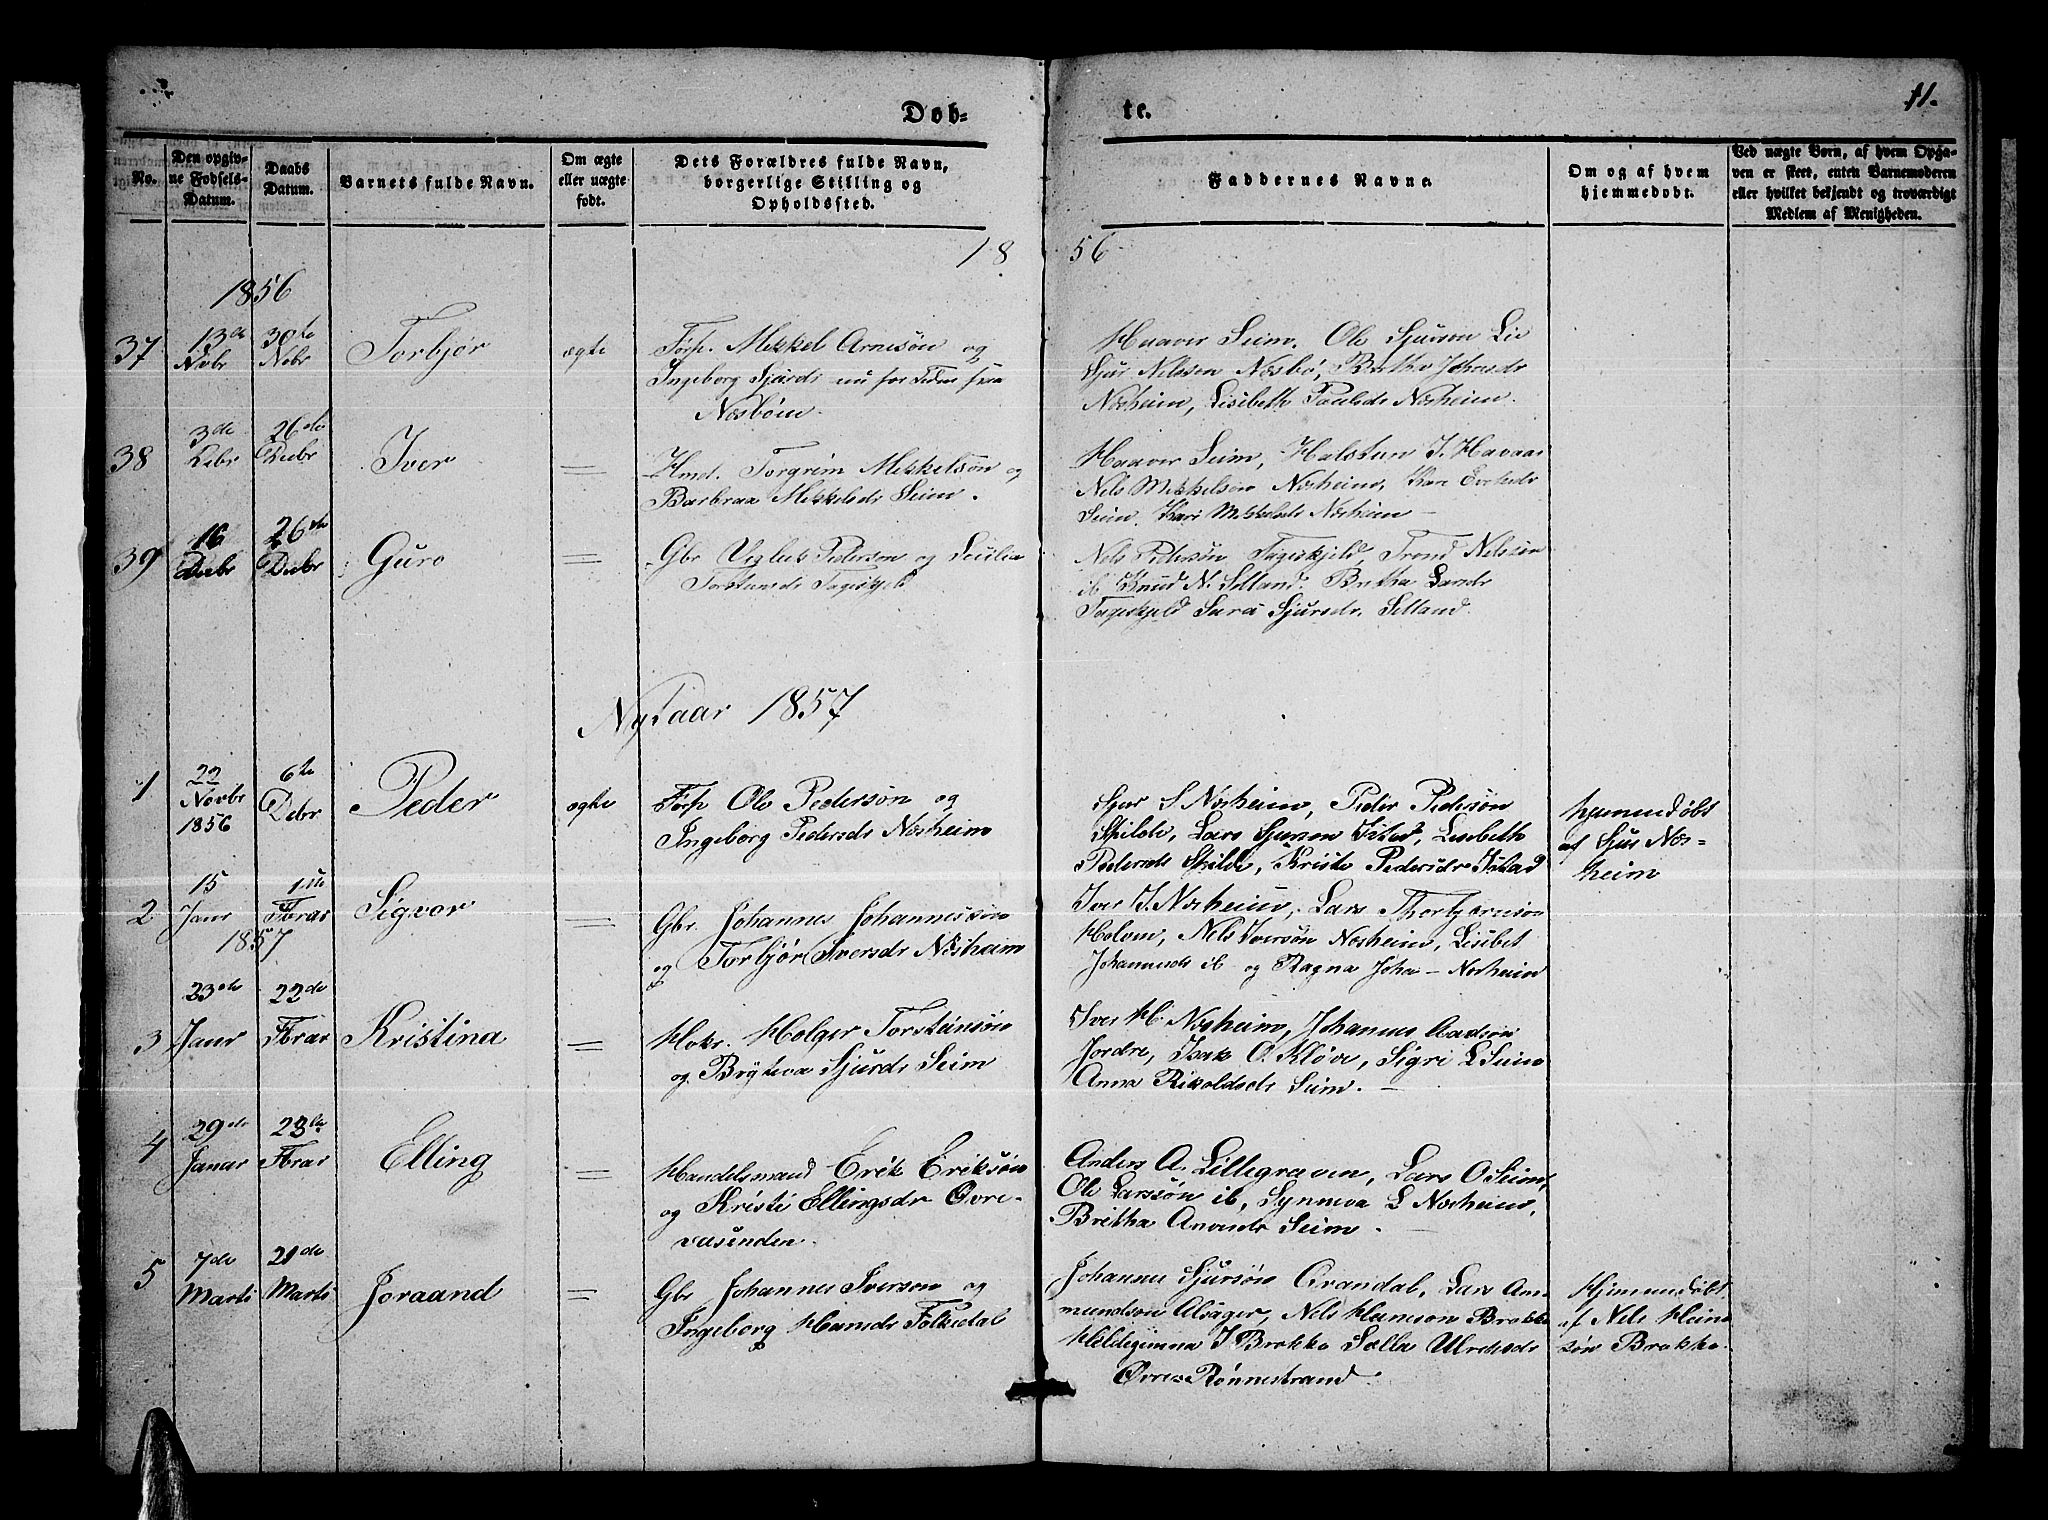 11.
Døb-
te.
No.
Den opgiv-
ne Fødsels-
Datum.
Daabs
Datum.
Barnets fulde Navn.
Om ægte
eller uægte
født.
Dets Forældres fulde Navn,
borgerlige Stilling og
Opholdssted.
Faddernes Navne.
Om og af hvem
hjemmedøbt.
Ved uægte Børn, af hvem Opga-
ven er skeet, enten Barnemoderen
eller hvilket bekjendt og troværdigt
Medlem af Menigheden.
18
56
1856
37
13de
Nvbr
30te
Nvbr
Torbjør
ægte
Førp. Mikkel Arnesøn og
Ingeborg Sjursdr nu for Tiden fra
Næsbøm.
Haaver Seim. Ole Sjurson Lie
Sjur Nilssen Næsbø, Britha Johansdr
Næsheim, Lisibeth Paulsdr Næsheim.
38
3de
Debr
26de
Debr
Iver
=
Hmd. Torgrim Mikkelsøn og
Barbraa Mikkelsdr Seim.
Haaver Seim, Halsten J. Havaas
Nels Mikkelsøn Næsheim, Kari
Seim. Kari Mikkelsdr Næsheim —
39
16
Debr
26de
Debr
Guro
=
Gbr Pederson og Secilia
Torsteinsdr Tageskjeld
Nels Pedersøn Tageskjeld, Trond Nelsøn
ib Knud N. Selland. Britha Larsdr
Tageskjeld Sara Sjursdr. Selland.
Nytaar 1857
1
22
Novbr
1856
6te
Debr
Peder
ægte
Førp Ole Pedersøn og
Ingeborg Pedersdr Næsheim
Sjur S Næsheim, Peder Pedersøn
Skilde, Lars Sjurson Istad, Lisbeth
Pedersdr Skilde, Kristi Pedersdr Istad
hjemmedøbt
af Sjur Næs-
heim
2
15
Janr
1857
1ste
Fbrar
Sigvor
=
Gbr. Johannes Johannessøn
og Torbjør Iversdr Næsheim
Iver J. Næsheim, Lars Thorbjørnsøn
Holven, Nels Iversøn Næsheim, Lisibet
Johannesdr ib og Ragna Joha — Næsheim
3
23de
Janr
22de
Fbrar
Kristina
=
Hokr. Holger Torsteinsøn
og Bryteva Sjursdr Seim
Iver H. Næsheim, Johannes
Jordre, Isak O. Kløve, Sigri L Seim
Anna Rikoldsdr Seim. —
4
29de
Janar
Fbrar
Elling
=
Handelsmand Erik Eriksøn
og Kristi Ellingsdr Øvre-
vasenden.
Anders A. Lillegraven, Lars O Seim,
Ole Larssøn ib, Synneva L Næsheim,
Britha Anvendr Seim —
5
7de
Marts
21de
Marts
Joraand
=
Gbr Johannes Iverson og
Ingeborg Hansdr Folkedal
Johannes Sjursøn Grandal, Lars Am-
mundson Alsager, Nels Heineson Brakke
Heldeginna J Brakke Salla Ulrichsdr
Øvre Rønnestrand.
Hjemmedøbt
af Nels Hein
søn Brakke.